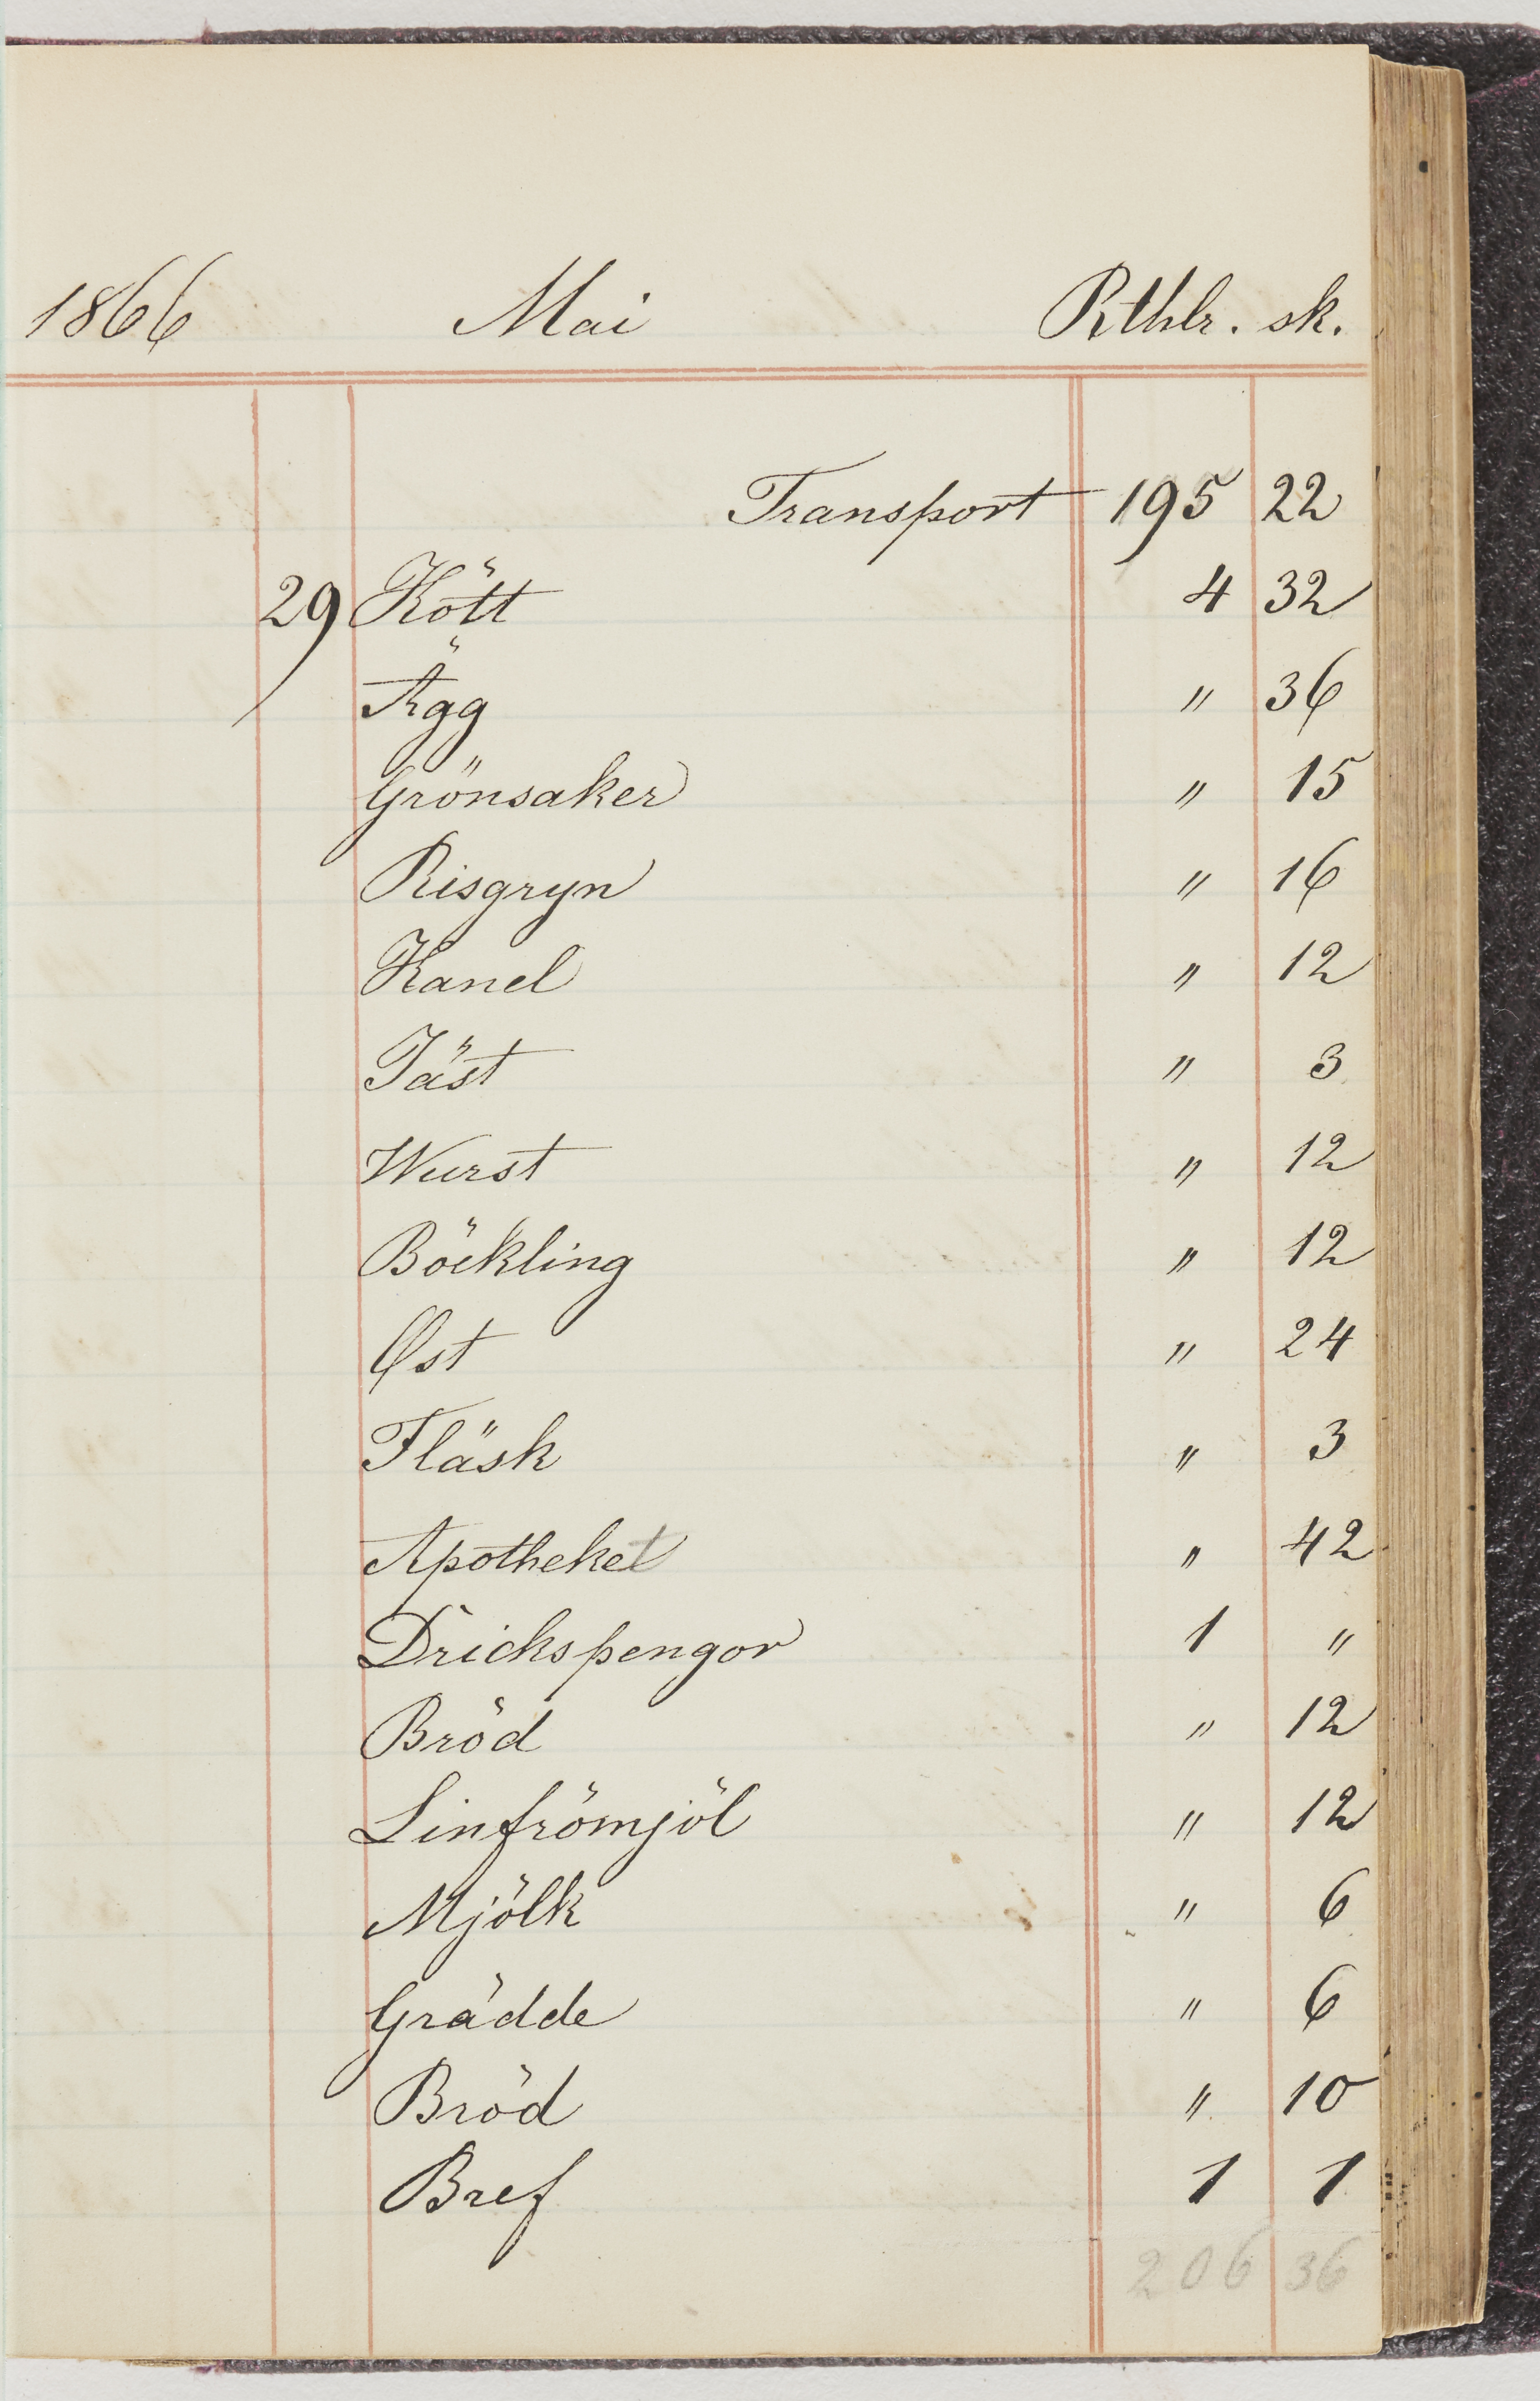 1866 Mai Rthlr. sk.
Transport 195 22
29 Kött 4 32
Ägg " 36
Grönsaker " 15
Risgryn " 16
Kanel " 12
Jäst " 3
Wurst " 12
Böckling " 12
Ost " 24
Fläsk " 3
Apotheket " 42
Drickspengor 1 "
Bröd " 12
Linfrömjöl " 12
Mjölk " 6
Grädde " 6
Bröd " 10
Bref 1 1
206 36